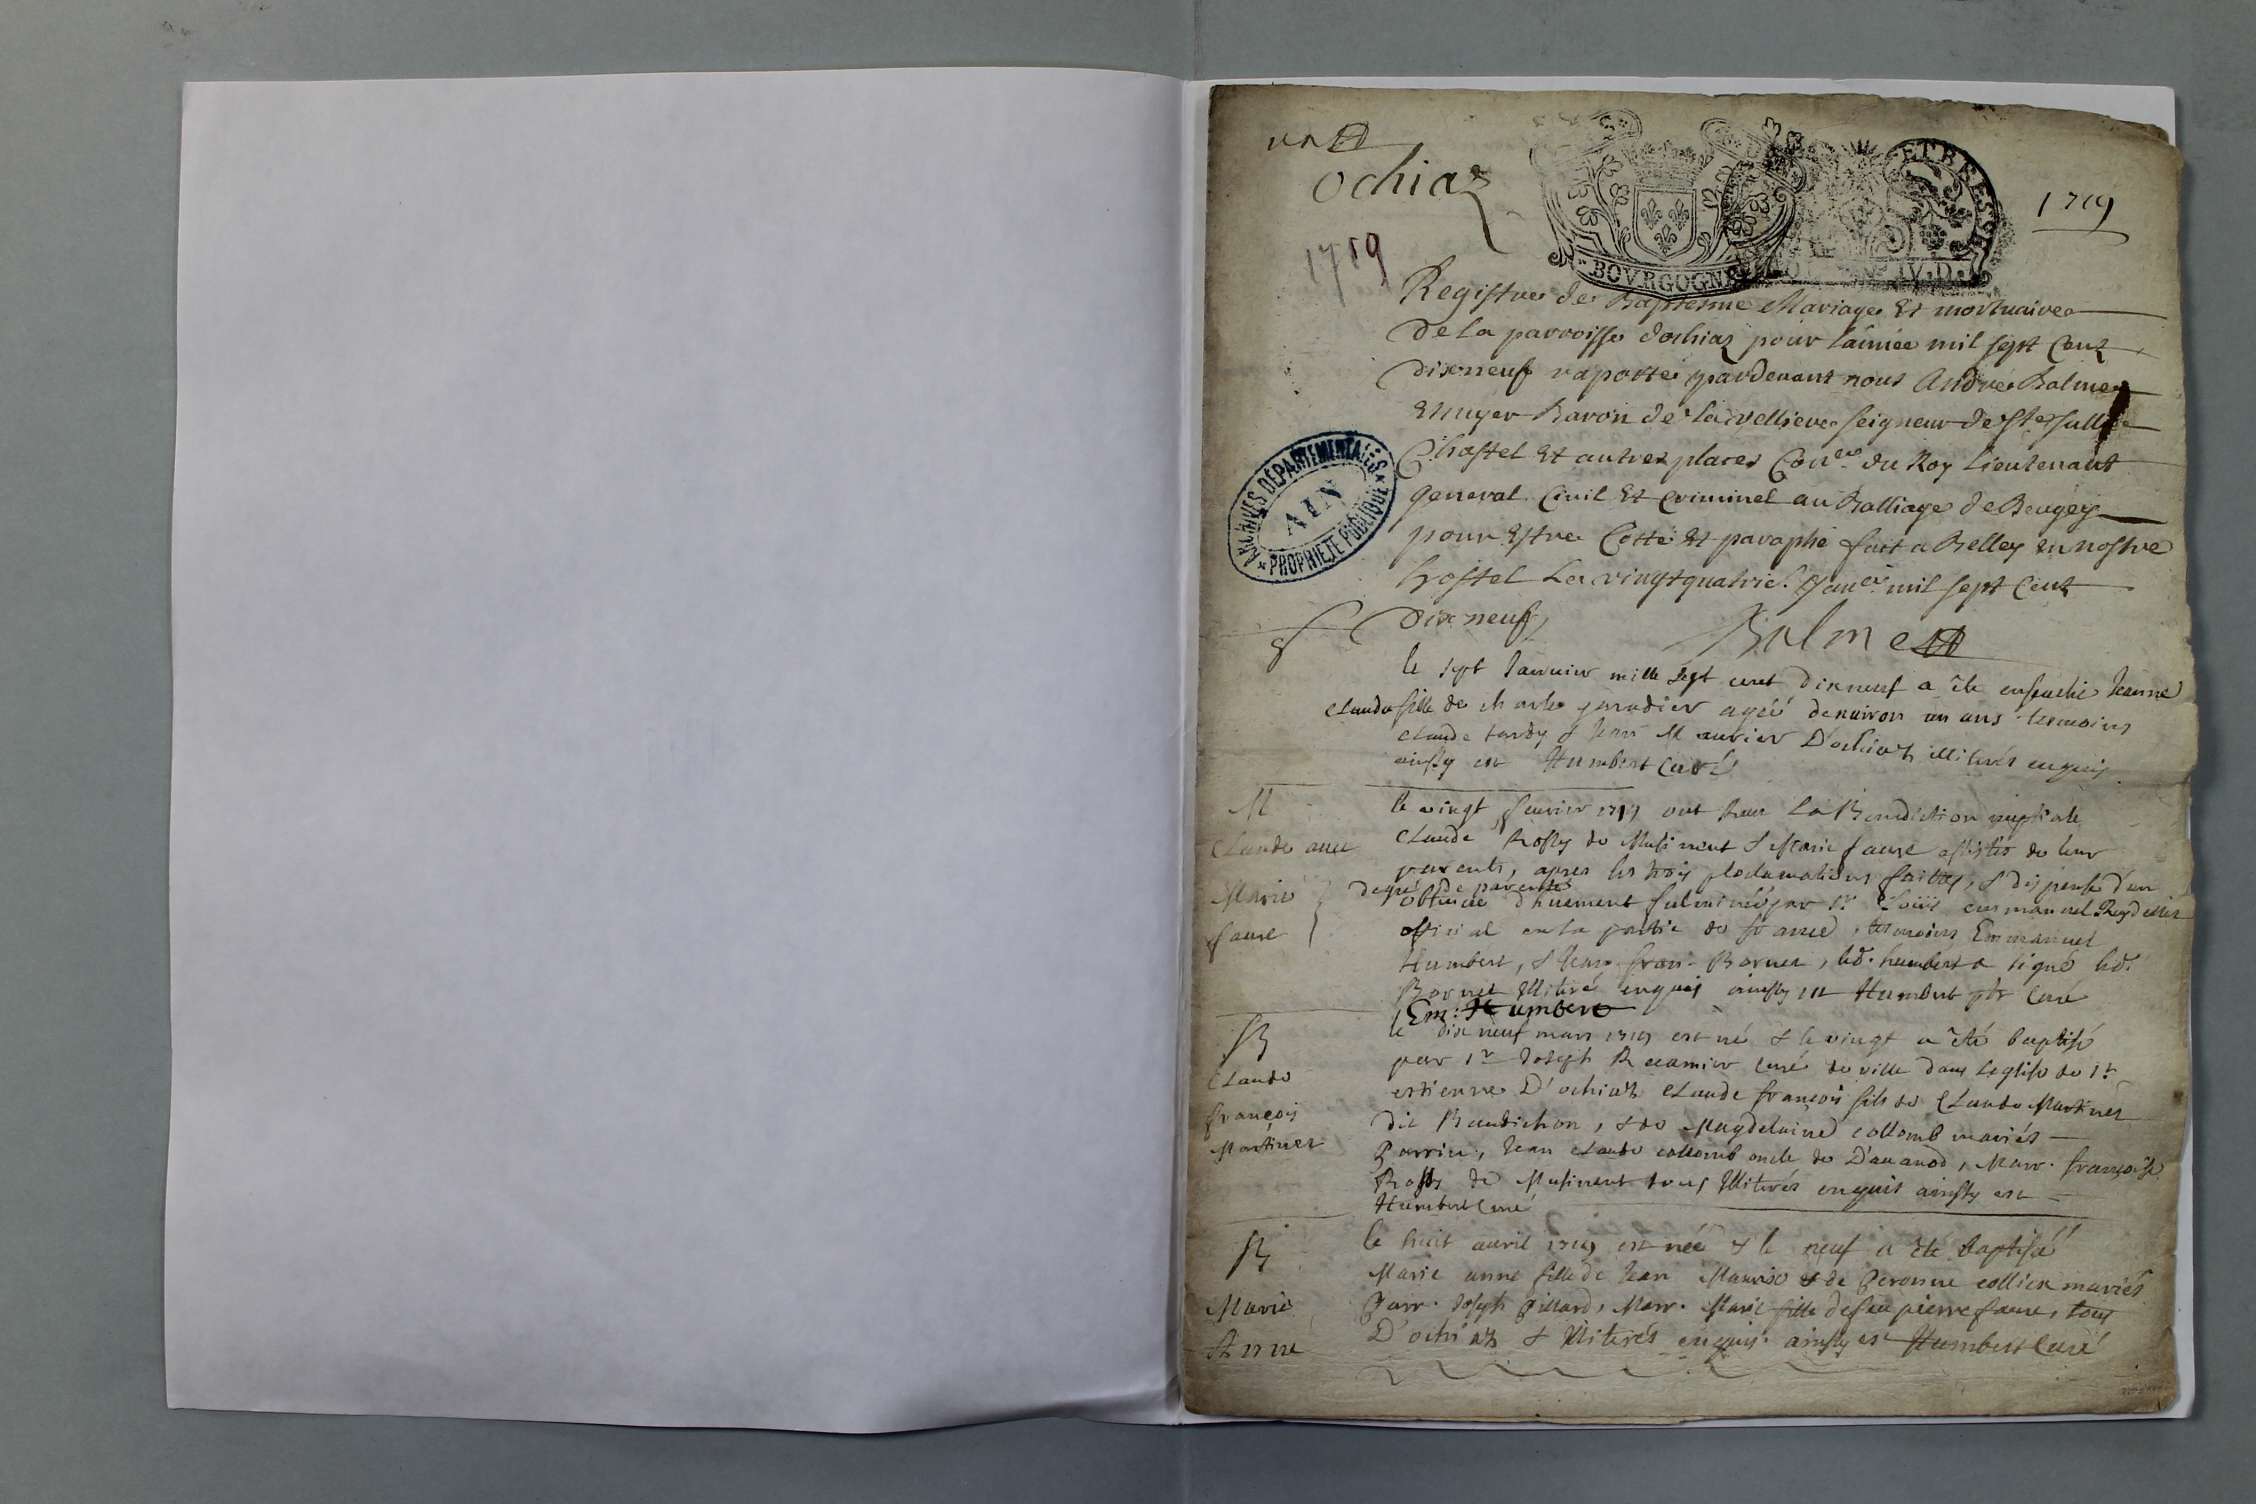 Ochiaz
1719
1719
BOVRGOGNE
ET BRESSE
ARCHIVES DÉPARTEMENTALES
AIN
PROPRIÉTÉ PUBLIQUE
Registre de Baptesme Mariage Et mortuaire
De la parroisse dochiaz pour lannée mil sept Cent
dixneuf raporté pardevant nous André Balme
Escuyer Baron de la vellière seigneur de Ste Jullie
Chastel Et autres places Coner du Roy Lieutenant
general Civil Et Criminel au Balliage de Beugey
pour Estre Cotté Et paraphé fait a Belley en nostre
hostel Le vingtquatrie Janer mil sept Cent
Dix neuf
Balme
le sept Janvier mille sept cent dixneuf a été ensevelie Jeanne
Claude fille de Charle paradier agéé denviron un ans temoins
Claude tardy & Jean Maurier D'ochiaz illiterés enquis
ainsy est Humbert Curé
M
Claude avec
Marie
faure
le vingt fevrier 1719 ont Receu La Benediction nuptiale
Claude Rossy de Musinent & Marie faure assistés de leur
parents, apres les trois proclamations faites, & dispense d'un
degré de parenté
obtenue dhuement fulminéé par Sr Loüis emmanuel
official en la partie de france, temoins Emmanuel
Humbert, & Jean fran. Bornet, led. humbert a signé led.
Bornet Illiteré enquis ainsy est Humbert ptr Curé
Em: Humbert
B
Claude
françois
Martinet
le dix neuf mars 1719 est né & le vingt a été baptisé
par Sr Joseph Recamier curé de ville dans leglise de St
estienne D'ochiaz Claude françois fils de Claude Martinet
dit Baudichon, & de Magdelaine collomb mariés
Parrin, Jean Claude collomb oncle de D'ananod, Marr. françoise
Rossy de Musinent tous Illiterés enquis ainsy est
Humbert Curé
B
Marie
Anne
le huit avril 1719 est néé & le neuf a été baptiséé
Marie anne fille de Jean Maurier & de Peronne collier mariés
Parr. Joseph Pillard, Marr. Marie fille de feu pierre faure, tous
D'ochiaz & Illiterés enquis ainsy est Humbert Curé